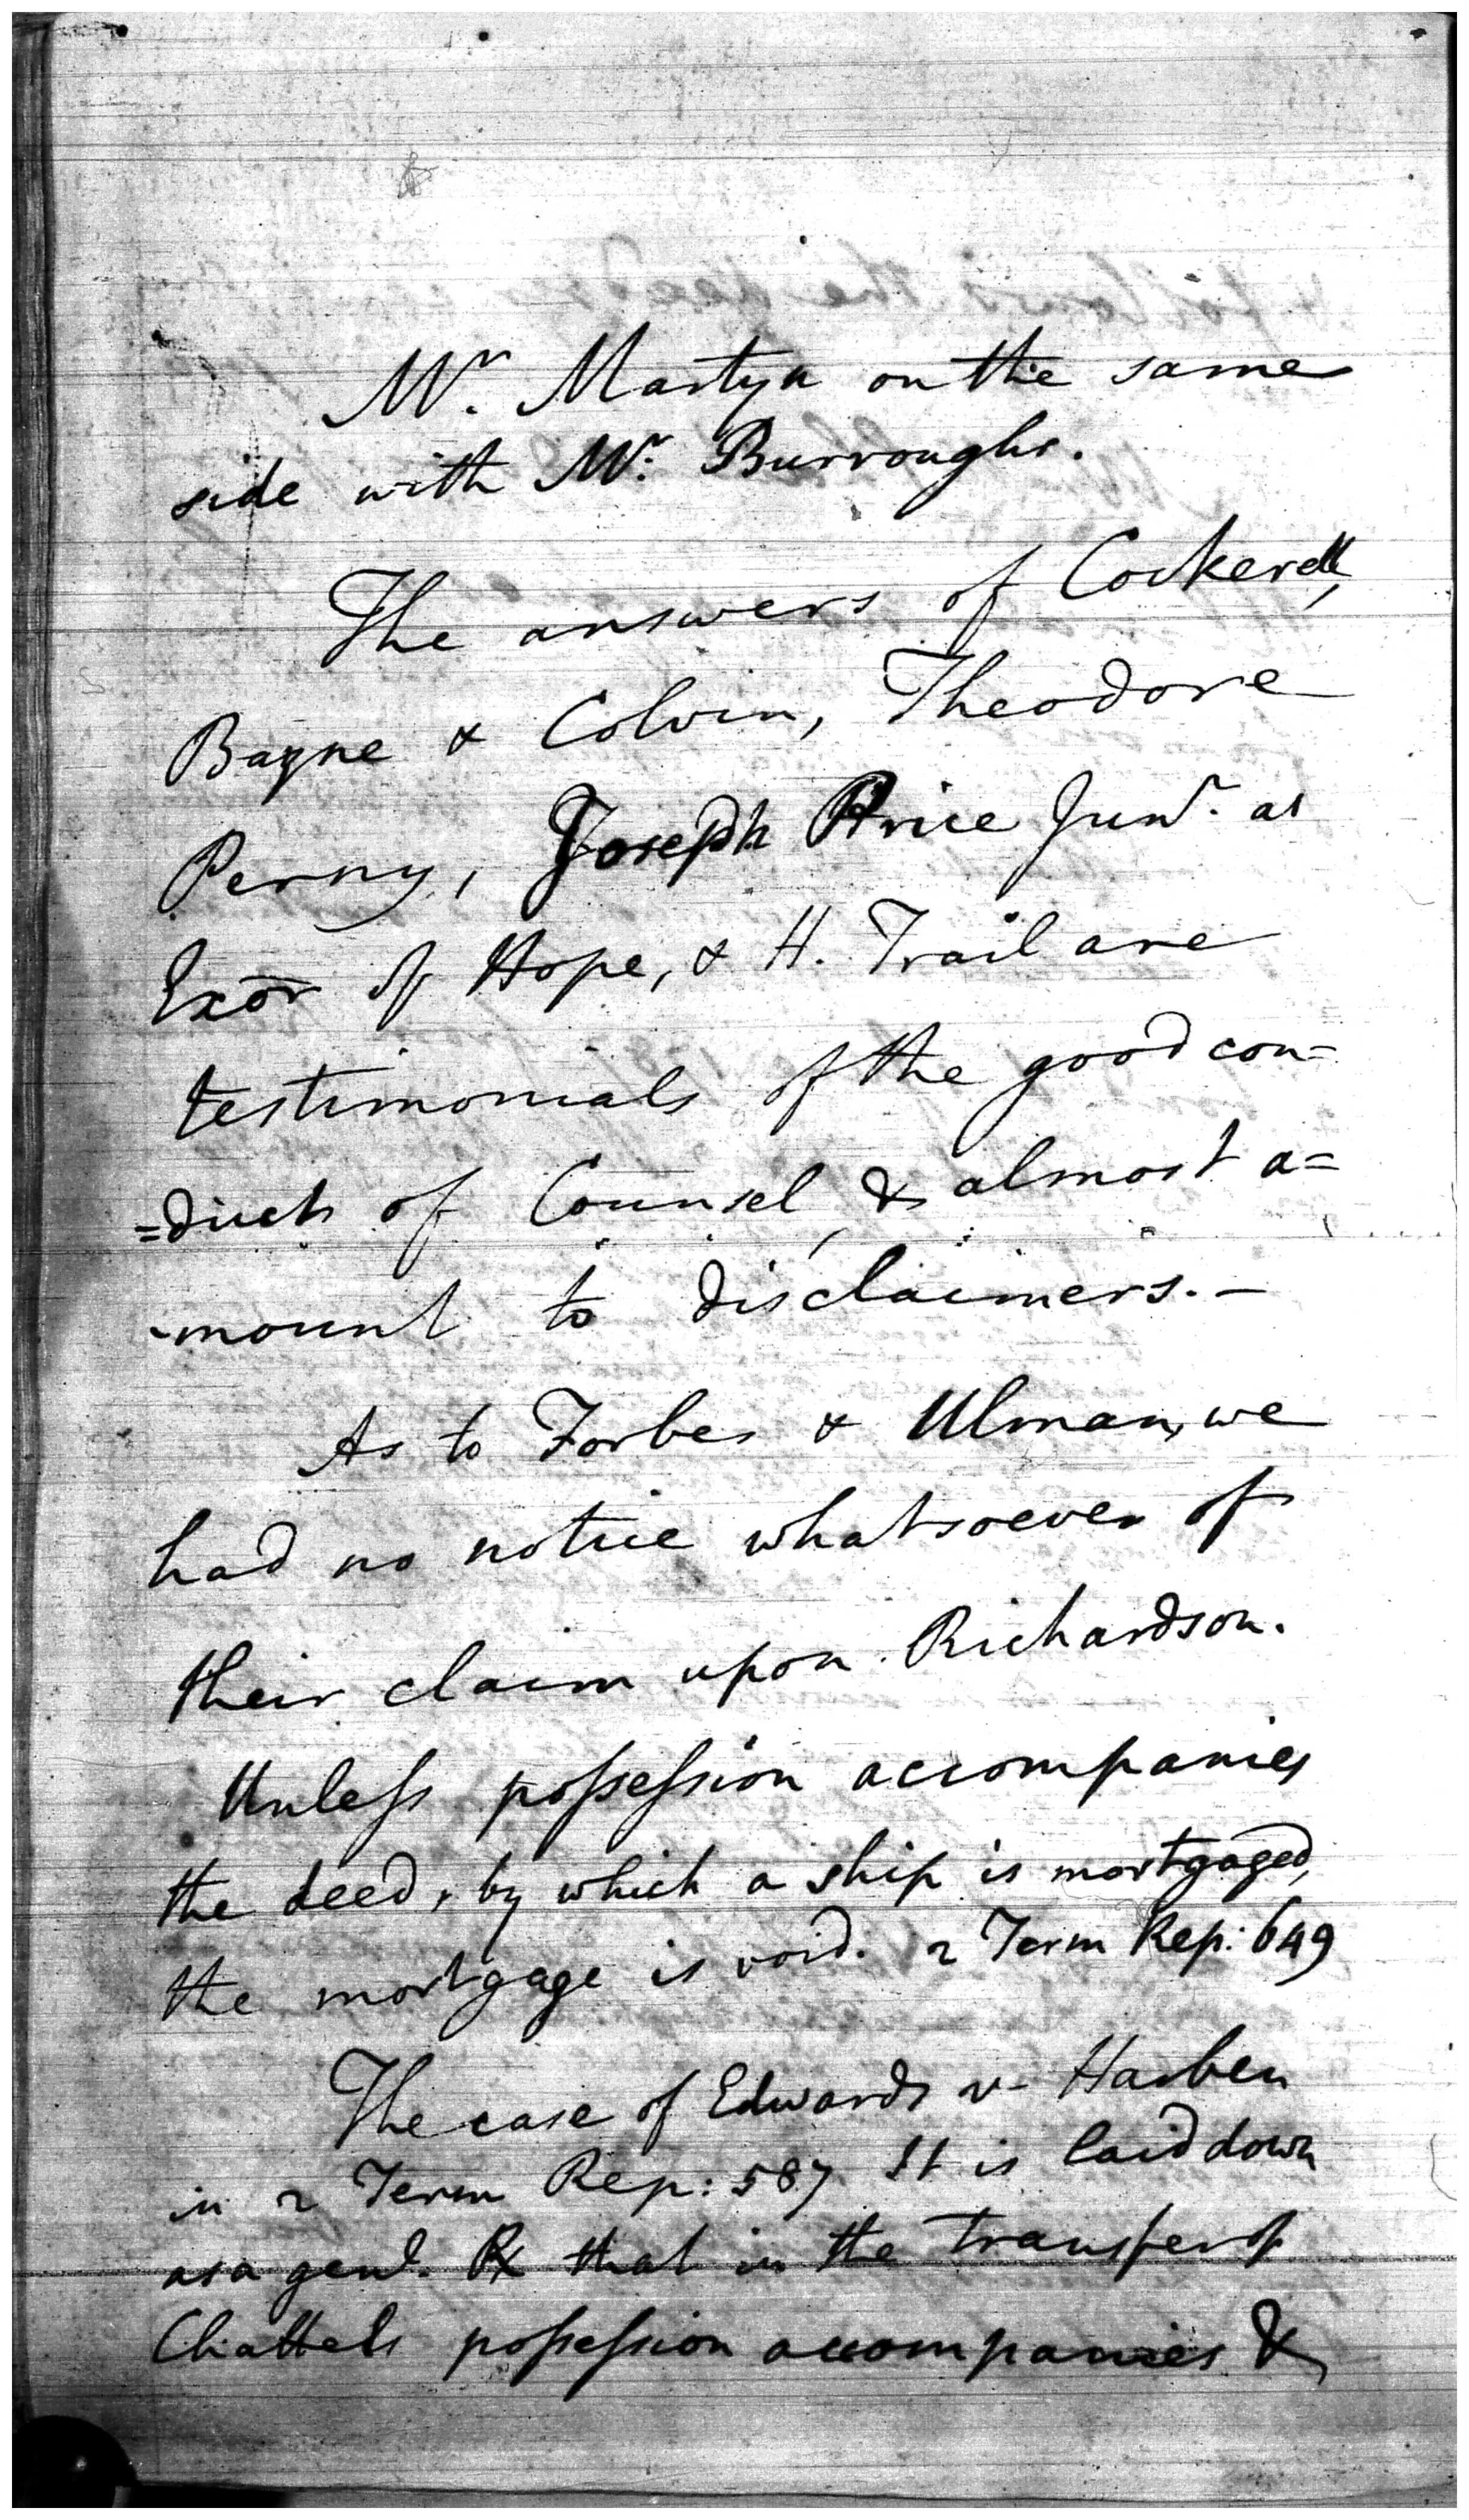 Mr. Martyn on the same
side with Mr. Burroughs.
The answers of Cockerell,
Bazne & Colvin, Theodore
Perny, Joseph Price Junr. as
Exōr of Hope, & H. Trail are
testimonials of the good con=
=duct of Counsel, & almost a=
-mount to disclaimers. -
As to Forbes & Ulman, we
had no notice whatsoever of
their claim upon Richardson.
Unless possession accompanies
the deed, by which a ship is mortgaged,
the mortgage is void. 2 Term Rep: 649
The case of Edwards v- Harben
in 2 Term Rep: 587 It is laid down
as a genl. R that in the transfer of
Chattels possession accompanies &